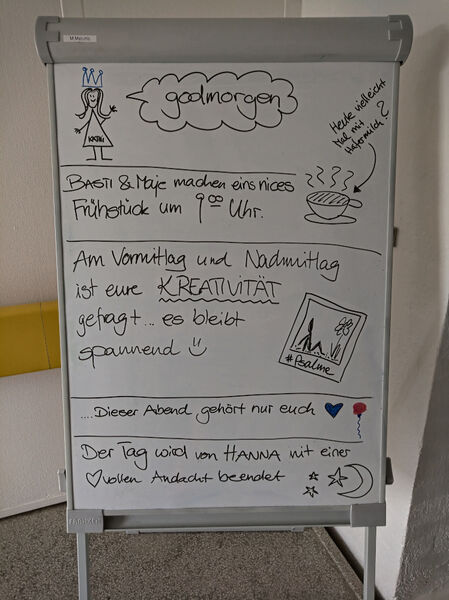 goodmorgen
KATHI
Heute vielleicht
Mal mit
Hafermilch?
BASTI & Maje machen eins nices
FRÜHSTÜCK UM 9 00 UHR.
Am Vormittag und Nachmittag
ist eure KREATIVITÄT
gefragt... es bleibt
spannend
#Psalme
....Dieser Abend gehört nur euch
DER TAG wird von HANNA mit einer
vollen Andacht beendet